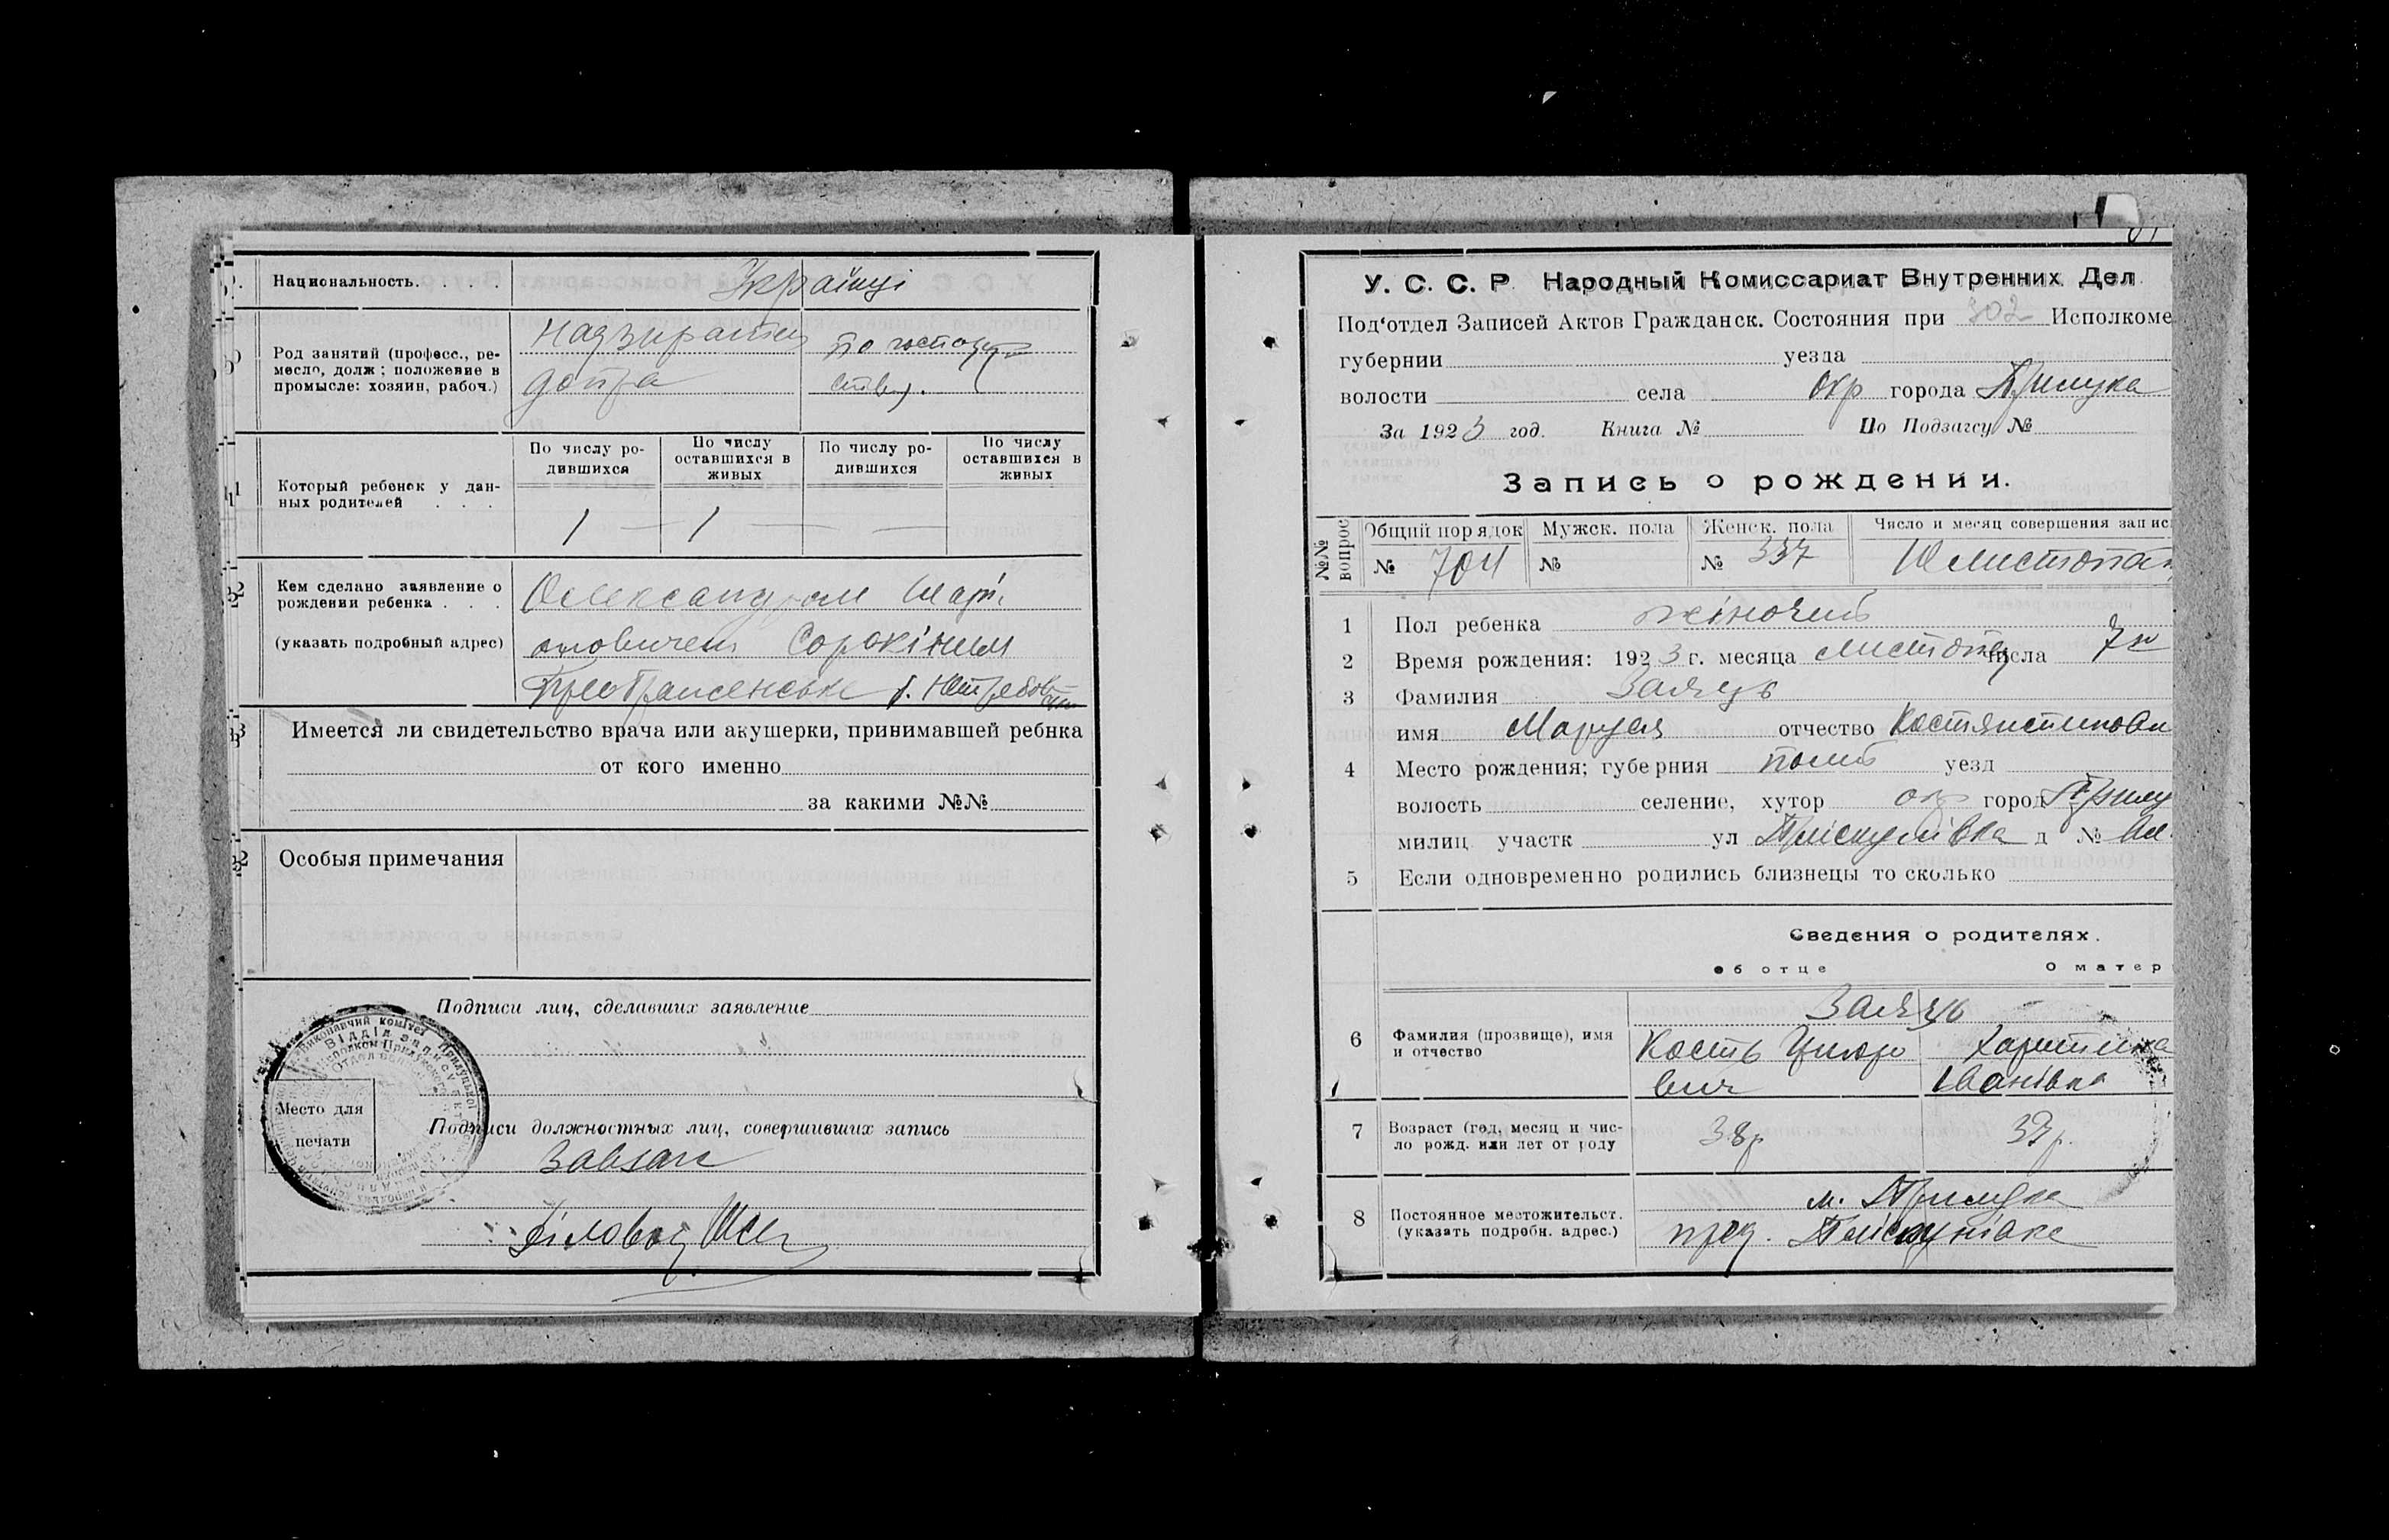 Национальность. . . . .
Українці
Род занятий (професс., ре-
месло, долж; положение в
промысле: хозяин, рабоч.)
Надзиратель
допра
По господар
ству.
Который ребенок у дан-
ных родителей . . .
По числу ро-
дившихся
По число
оставшихся в
живых
По числу ро-
дившихся
По число
оставшихся в
живых
1 — 1 — —
Кем сделано заявление о
рождении ребенка . . .
(указать подробный адрес)
Олександром
Сорокіним
Имеется ли свидетельство врача или акушерки, принимавшей ребнка
от кого именно
за какими №№
Особыя примечания
Подписи лиц, сделавших заявление
Место для
печати
Подписи должностных лиц, совершивших запись
Завзагс
Діловод
У. С. С. Р. Народный Комиссариат Внутренних Дел
Под'отдел Записей Актов Гражданск. Состояния при Исполкоме
губернии уезда
волости села окр города Прилука
За 1923 год. Книга № По Подзагсу №
Запись о рождении.
№№ вопрос
Общий порядок
Мужск. пола
Женск. пола
Число и месяц совершения запис
№ 704 № № 337 10 листопад
1 Пол ребенка жіночий
2 Время рождения: 1923 г. месяца листопад числа 7го
3 Фамилия Заяць
имя Маруся отчество Костянтиновн
4 Место рождения; губерния полт уезд
волость селение, хутор окр город Прилу
милиц участк ул Пліскунівка д №
5 Если одновременно родились близнецы то сколько
Сведения о родителях.
об отце О матер
6 Фамилия (прозвище), имя
и отчество
Заяць
Кость
вич
Харитина
Іванівна
7 Возраст (год, месяц и чис-
ло рожд. или лет от роду
38р 37р.
8 Постоянное местожительст.
(указать подробн. адрес.)
м. Прилука
пред. Пліскунівка